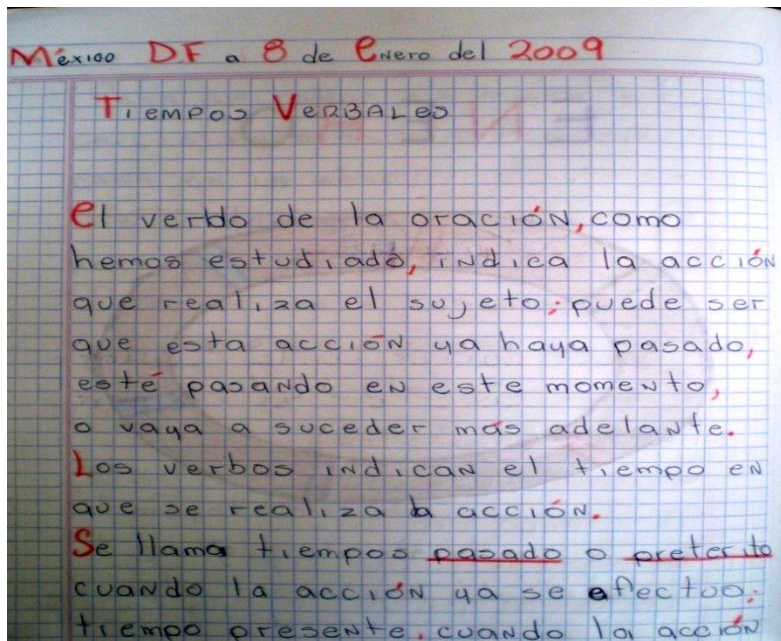 México DF a 8 de Enero del 2009
Tiempos Verbales
El verbo de la oración, como
hemos estudiado, indica la acción
que realiza el sujeto; puede ser
que esta acción ya haya pasado,
esté pasando en este momento,
o vaya a suceder más adelante.
Los verbos indican el tiempo en
que se realiza la acción.
Se llama tiempos pasado o preterito
cuando la acción ya se efectuo;
tiempo presente, cuando la acción